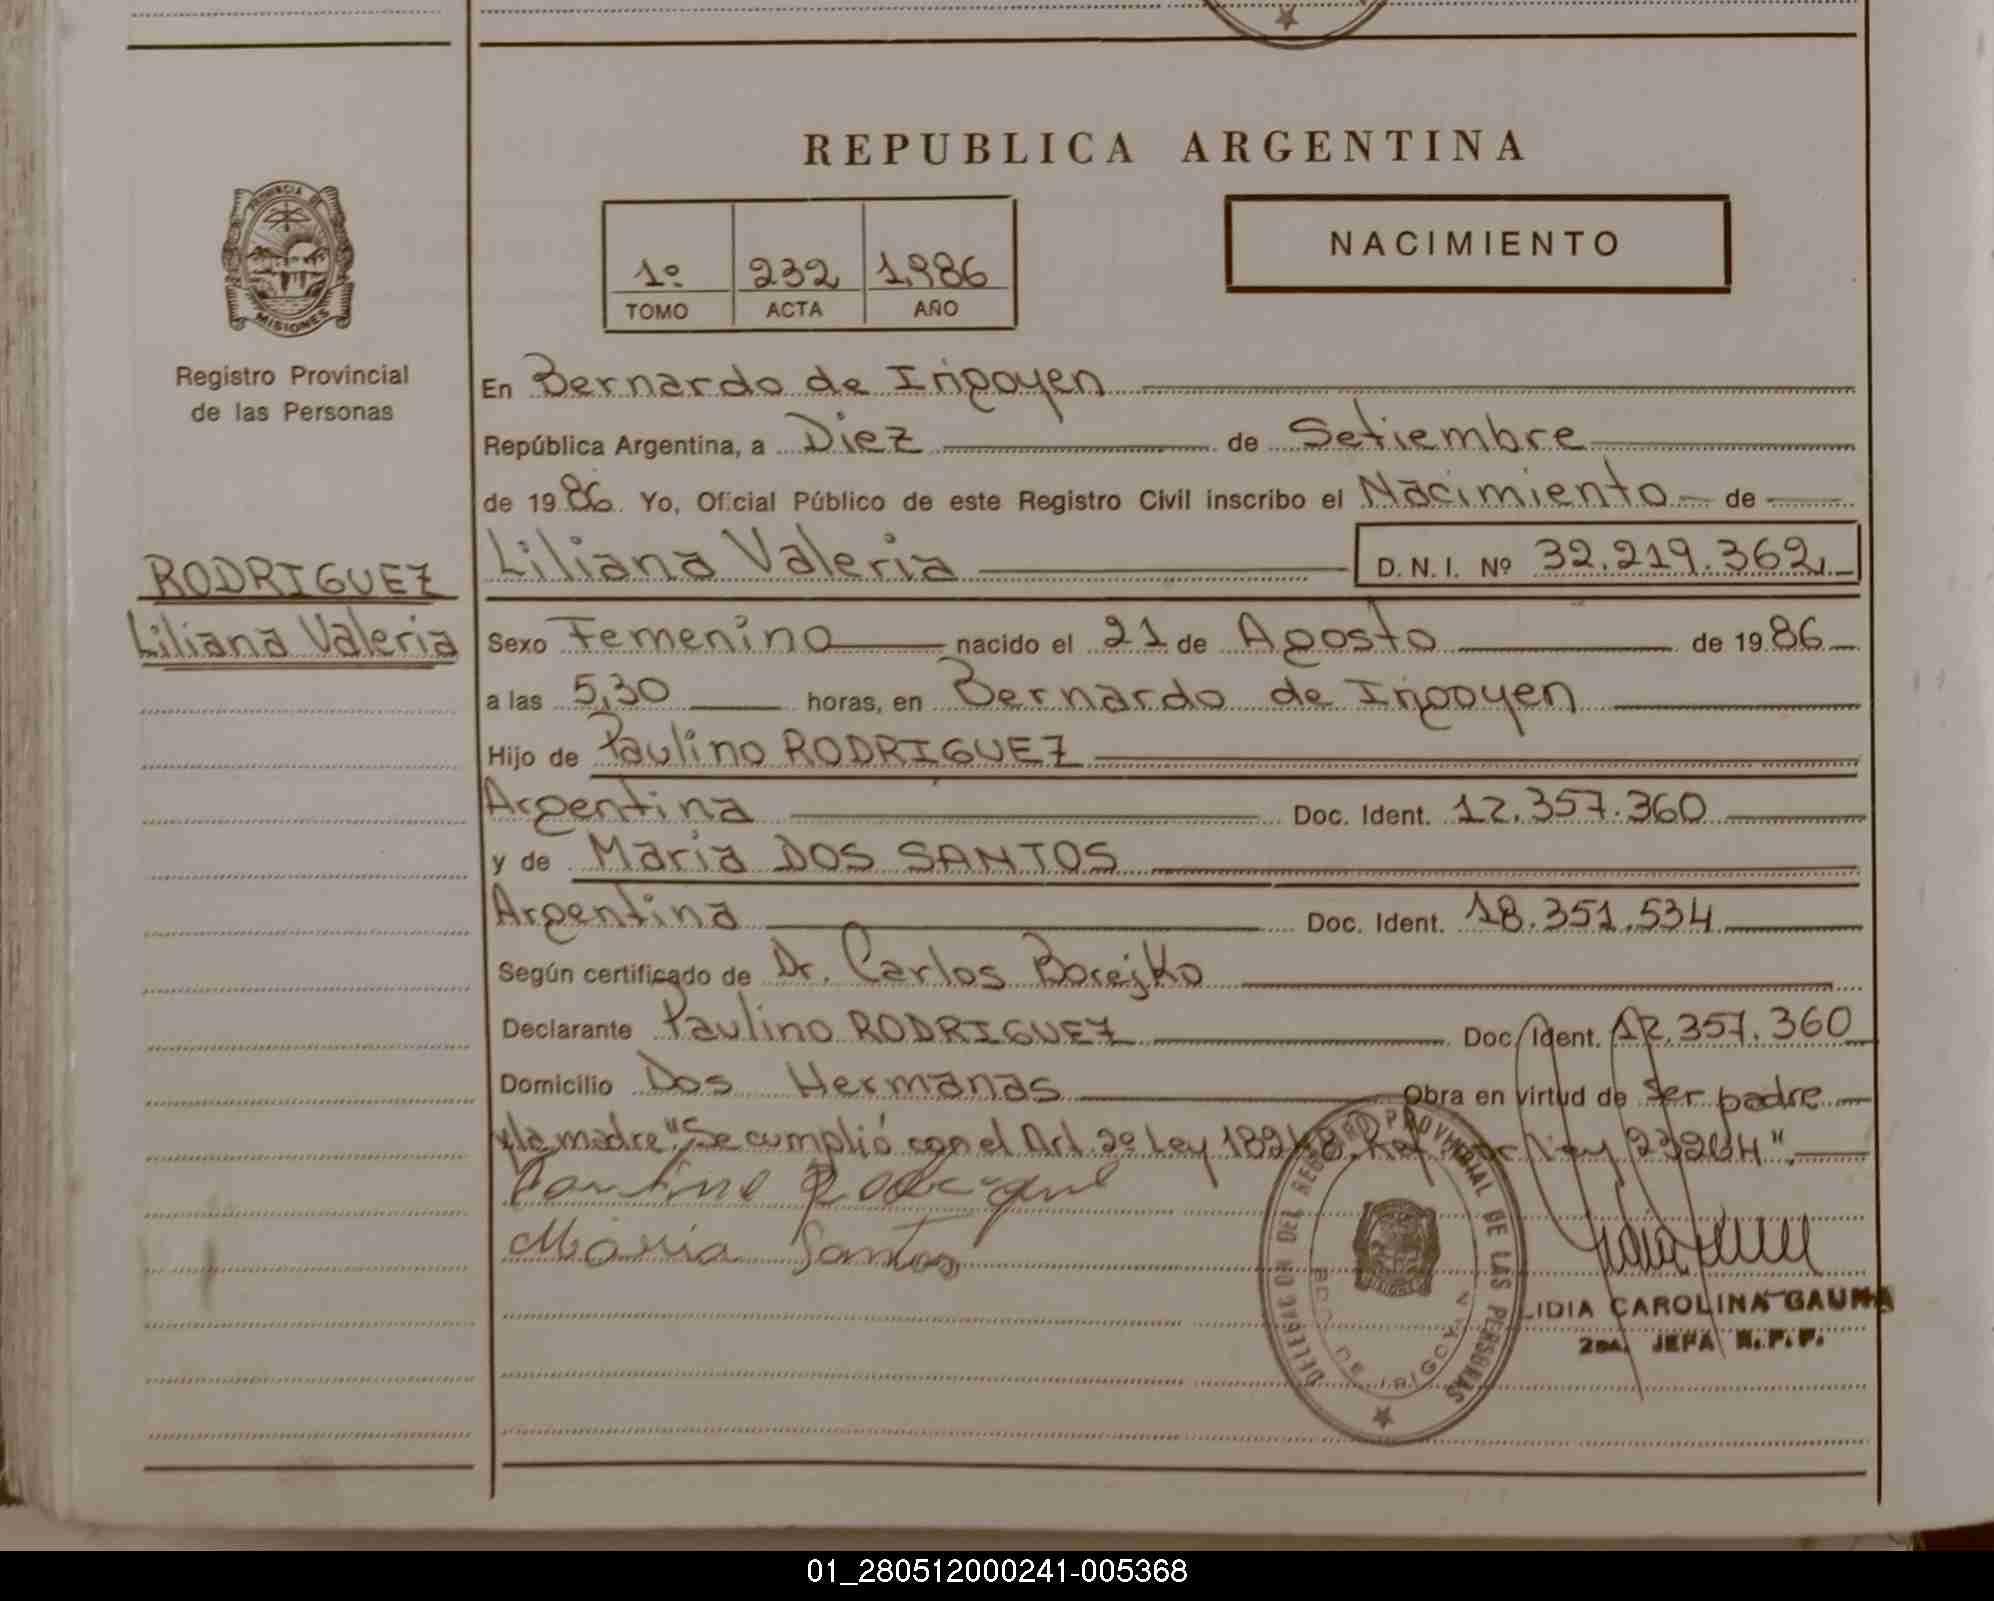 REPUBLICA ARGENTINA
PROVINCIA DE
MISIONES
Registro Provincial
de las Personas
NACIMIENTO
1º 232 1986
TOMO ACTA AÑO
En Bernardo de Irigoyen
República Argentina, a Diez de Setiembre
de 1986. Yo, Oficial Público de este Registro Civil inscribo el Nacimiento de
RODRIGUEZ
Liliana Valeria
Liliana Valeria D.N.I. Nº 32.219.362
Sexo Femenino nacido el 21 de Agosto de 1986
a las 5,30 horas, en Bernardo de Irigoyen
Hijo de Paulino RODRIGUEZ
Argentina Doc. Ident. 12.357.360
y de Maria DOS SANTOS
Argentina Doc. Ident. 18.351.534
Según certificado de Dr. Carlos Borejko
Declarante Paulino RODRIGUEZ Doc. Ident. 12.357.360
Domicilio Dos Hermanas Obra en virtud de Ser padre
y la madre "Se cumplió con el Art. 2º Ley 18248. Ref. por Ley 23264".
Maria Santos
DELEGACION DEL REGISTRO PROVINCIAL DE LAS PERSONAS
BDO. DE IRIGOYEN
LIDIA CAROLINA GAUNA
2da. JEFA R.P.P.
01_280512000241-005368